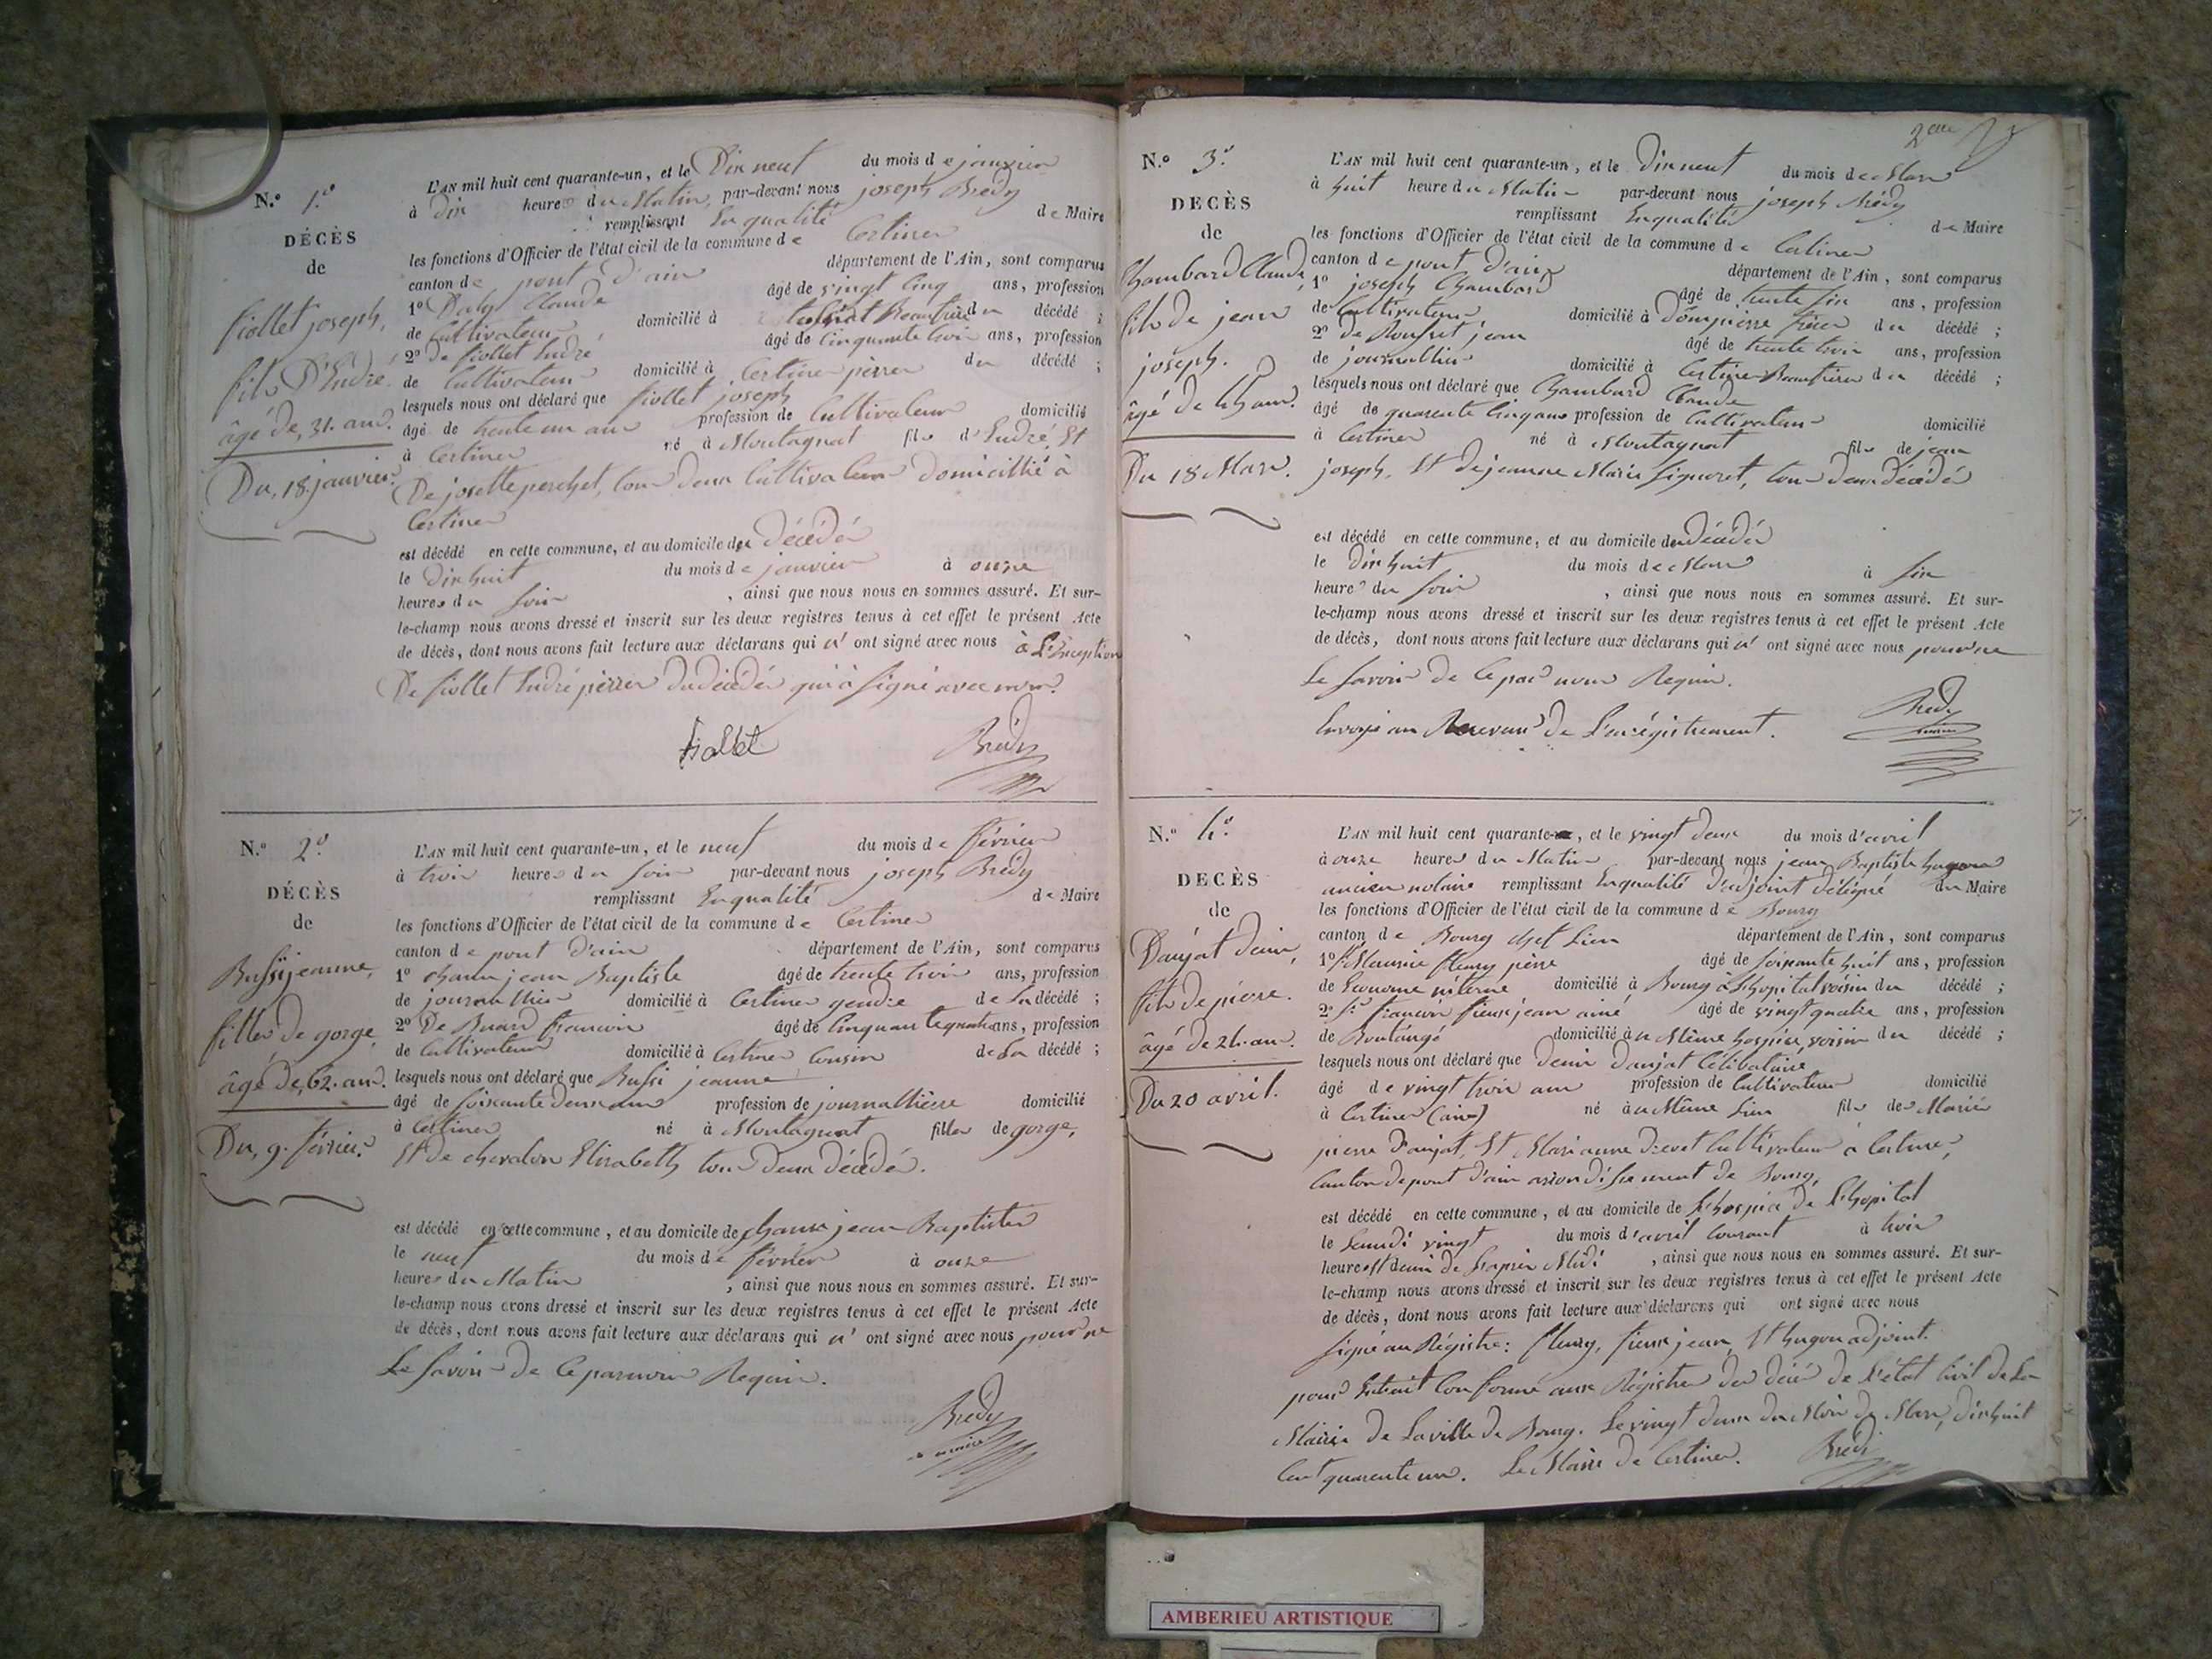 N.º 1.º
DÉCÈS
de
fiollet joseph,
fils D'André.
âgé de, 31. ans.
Du, 18. janvier.
L'AN mil huit cent quarante-un, et le Dix neuf du mois de janvier
à dix heures du Matin, par-devant nous joseph Brédy
remplissant En qualité de Maire
les fonctions d'Officier de l'état civil de la commune de Certines
canton de pont d'ain département de l'Ain, sont comparus
1º Claude âgé de vingt cinq ans, profession
de Cultivateur domicilié à Beaufrère du décédé ;
2º De fiollet André âgé de cinquante trois ans, profession
de Cultivateur domicilié à Certines père du décédé ;
lesquels nous ont déclaré que fiollet joseph
âgé de trente un ans profession de Cultivateur domicilié
à Certines né à Montagnat fils d'André Et
De josette perchet, tous deux Cultivateurs domicillié à
Certines
est décédé en cette commune, et au domicile du Décédé
le Dix huit du mois de janvier à onze
heures du soir , ainsi que nous nous en sommes assuré. Et sur-
le-champ nous avons dressé et inscrit sur les deux registres tenus à cet effet le présent Acte
de décès, dont nous avons fait lecture aux déclarans qui n' ont signé avec nous à L'Exception
De fiollet André père du décédé qui à signé avec nous.
fiollet Brédy
N.º 2.º
DÉCÈS
de
Bussi jeanne,
fille de gorge,
âgé de, 62. ans.
Du, 9. février.
L'AN mil huit cent quarante-un, et le neuf du mois de février
à trois heures du soir par-devant nous joseph Brédy
remplissant En qualité de Maire
les fonctions d'Officier de l'état civil de la commune de Certines
canton de pont d'ain département de l'Ain, sont comparus
1º jean Baptiste âgé de trente trois ans, profession
de journallier domicilié à Certines gendre de La décédé ;
2º De Buard francois âgé de Cinquante quatre ans, profession
de Cultivateur domicilié à Certines Cousin de La décédé ;
lesquels nous ont déclaré que Bussi jeanne
âgé de soixante deux ans profession de journallière domicilié
à Certines né à Montagnat fille de gorge,
Et de chevalon Elisabeth tous deux décédé.
est décédé en cette commune, et au domicile de jean Baptiste
le neuf du mois de février à onze
heures du Matin , ainsi que nous nous en sommes assuré. Et sur-
le-champ nous avons dressé et inscrit sur les deux registres tenus à cet effet le présent Acte
de décès, dont nous avons fait lecture aux déclarans qui n' ont signé avec nous pour ne
Le savoir de Ce par nous Requis.
Brédy
maire
2eme
N.º 3.º
DÉCÈS
de
Chambard Claude,
fils de jean
joseph.
âgé de 45 ans.
Du 18 Mars.
L'AN mil huit cent quarante-un, et le Dix neuf du mois de Mars
à huit heure du Matin par-devant nous joseph Brédy
remplissant En qualité de Maire
les fonctions d'Officier de l'état civil de la commune de Certines
canton de pont d'ain département de l'Ain, sont comparus
1º joseph Chambard âgé de trente six ans, profession
de Cultivateur domicilié à Dompierre frère du décédé ;
2º de jean âgé de trente trois ans, profession
de journallier domicilié à Certines Beaufrère du décédé ;
lesquels nous ont déclaré que Chambard Claude
âgé de quarente Cinq ans profession de Cultivateur domicilié
à Certines né à Montagnat fils de jean
joseph, Et de jeanne Marie figueret, tous deux décédé
est décédé en cette commune, et au domicile du décédé
le Dix huit du mois de Mars à six
heure du soir , ainsi que nous nous en sommes assuré. Et sur-
le-champ nous avons dressé et inscrit sur les deux registres tenus à cet effet le présent Acte
de décès, dont nous avons fait lecture aux déclarans qui n' ont signé avec nous pour ne
Le savoir de Ce par nous Requis.
Envoyé au Receveur de L'enrégistrement. Brédy
maire
N.º 4.º
DÉCÈS
de
Danjat denis,
fils de pierre.
âgé de 24 ans.
Du 20 avril.
L'AN mil huit cent quarante-un, et le vingt deux du mois d'avril
à onze heures du Matin par-devant nous jean Baptiste hugon
ancien notaire remplissant En qualité D'adjoint délégué du Maire
les fonctions d'Officier de l'état civil de la commune de Bourg
canton de Bourg chef Lieu département de l'Ain, sont comparus
1º Sr Maurice fleury pierre âgé de soixante huit ans, profession
de Econome interne domicilié à Bourg à L'hopital voisin du décédé ;
2º Sr francois fieux jean ainé âgé de vingt quatre ans, profession
de Boulangé domicilié à u Même hospice, voisin du décédé ;
lesquels nous ont déclaré que Denis Danjat Célibataire
âgé de vingt trois ans profession de Cultivateur domicilié
à Certines (ain) né au Même Lieu fils des Mariés
pierre Danjat, Et Marianne Drevet Cultivateur à Certines,
Canton de pont d'ain arrondissement de Bourg,
est décédé en cette commune, et au domicile de L'hospice de L'hopital
le Lundi vingt du mois d'avril Courant à trois
heures Et demi de L'après Midi , ainsi que nous nous en sommes assuré. Et sur-
le-champ nous avons dressé et inscrit sur les deux registres tenus à cet effet le présent Acte
de décès, dont nous avons fait lecture aux déclarans qui ont signé avec nous
signé au Régistre: fleury, fieux jean, Et hugon adjoint.
pour Extrait Conforme aux Régistres des décès de L'état Civil de La
Mairie de La ville de Bourg. Le vingt deux du Mois de Mars, dix huit
Cent quarente un. Le Maire de Certines. Brédi
AMBERIEU ARTISTIQUE